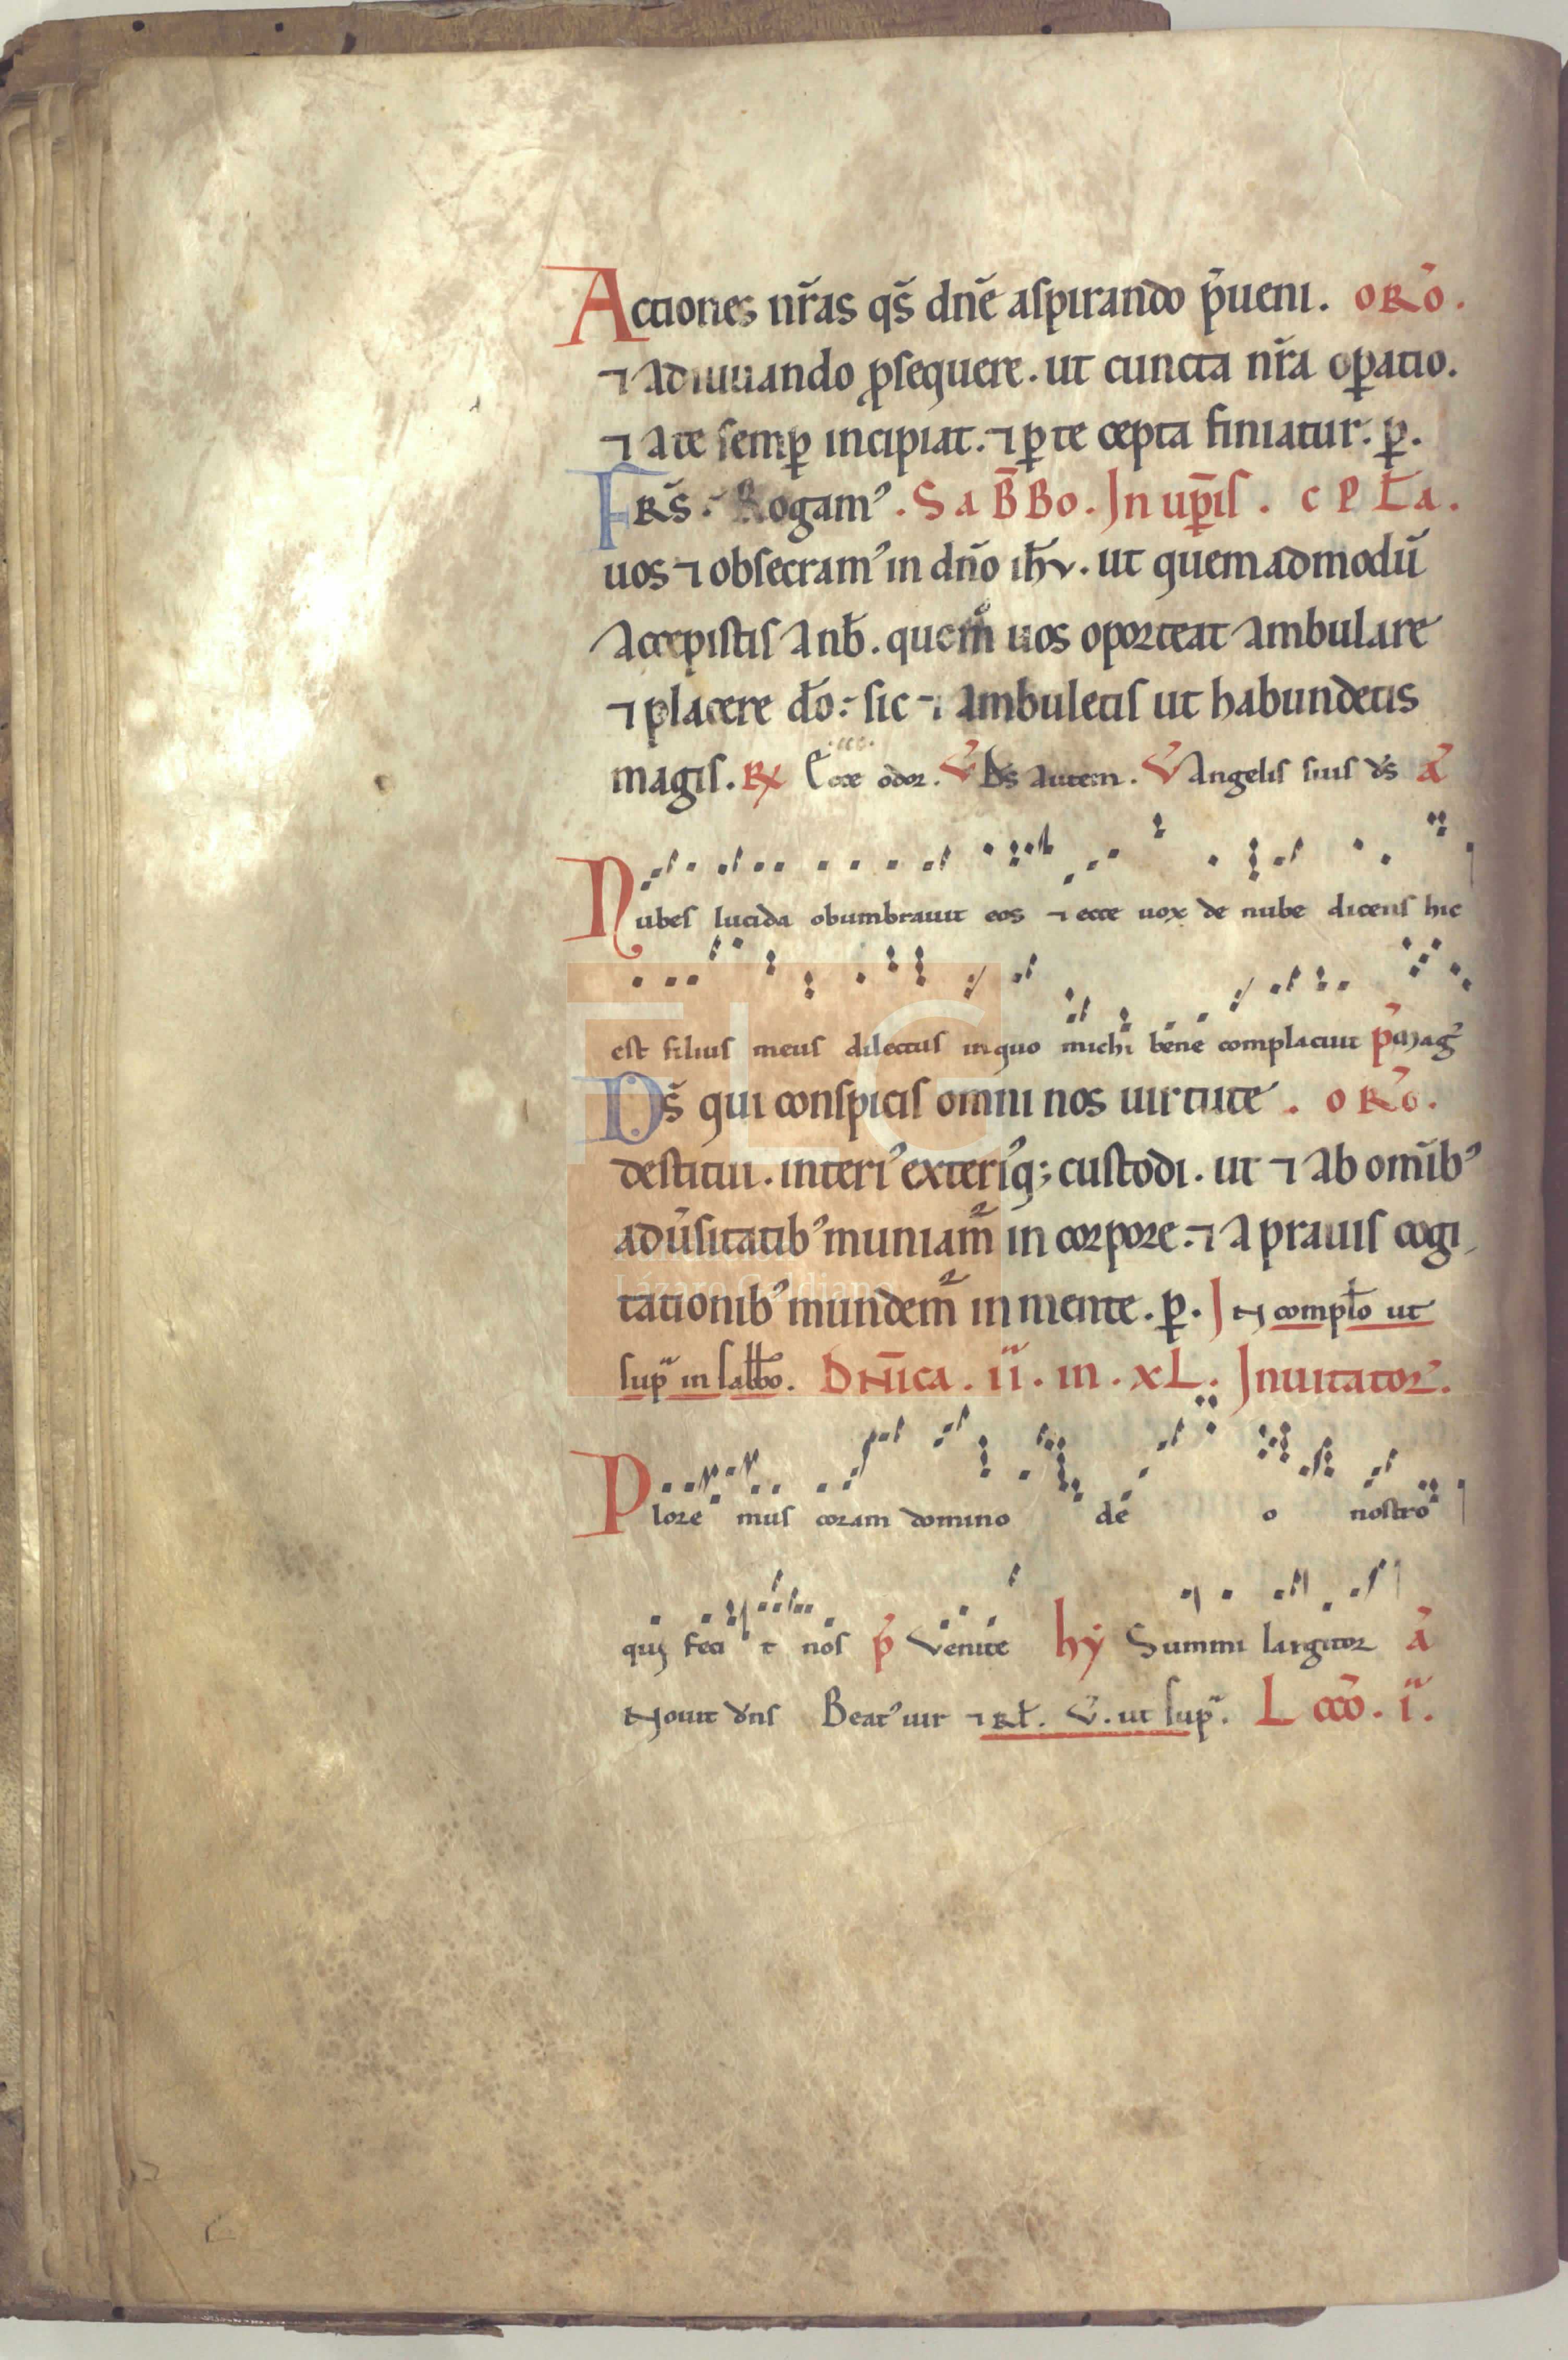 Actiones nr̃as qs̃ dnẽ aspirando p̃ueni. oRõ.
⁊ adiuuando ꝓsequere. ut cuncta nr̃a oꝑatio.
⁊ a te semꝑ incipiat. ⁊ ꝑ te cepta finiatur. ꝑ.
FRs̃. Rogam᾿. SaB̃Bo. In uꝑ̃is. CPL̃a.
uos ⁊ obsecram᾿ in dño ih̃v. ut quemadmodũ
accepistis a nob̃. quem̊ uos oporteat ambulare
⁊ placere do̅. sic ⁊ ambuletis ut habundetis
magis. R̸ Ecce odor. V̾ Ds̃ autem. V̾ Angelis suis ds̃ ã
Nubes lucida obumbrauit eos ⁊ ecce uox de nube dicens hic
est filius meus dilectus in quo michi bene complacuit p̃ Mag̃
Ds̃ qui conspicis omni nos uirtute. oRõ.
destitui. interi᾿ exteri᾿q; custodi. ut ⁊ ab om̃ib᾿
adũsitatib᾿ muniam̃ in corpore. ⁊ a prauis cogi
tationib᾿ mundem̃ in mente. ꝑ. In compl̃o ut
sup̃ in sabb̃o. DÑica. ii. in. xL. Inuitator᾿.
Ploremus coram domino deo nostro
qui fecit nos p̃ Venite hẏ Summi largitor ã
Nouit dñs Beat᾿ uir ⁊ Rł. V̾. ut sup̃. Lcc̃o. i.
FLG
Lázaro Galdiano